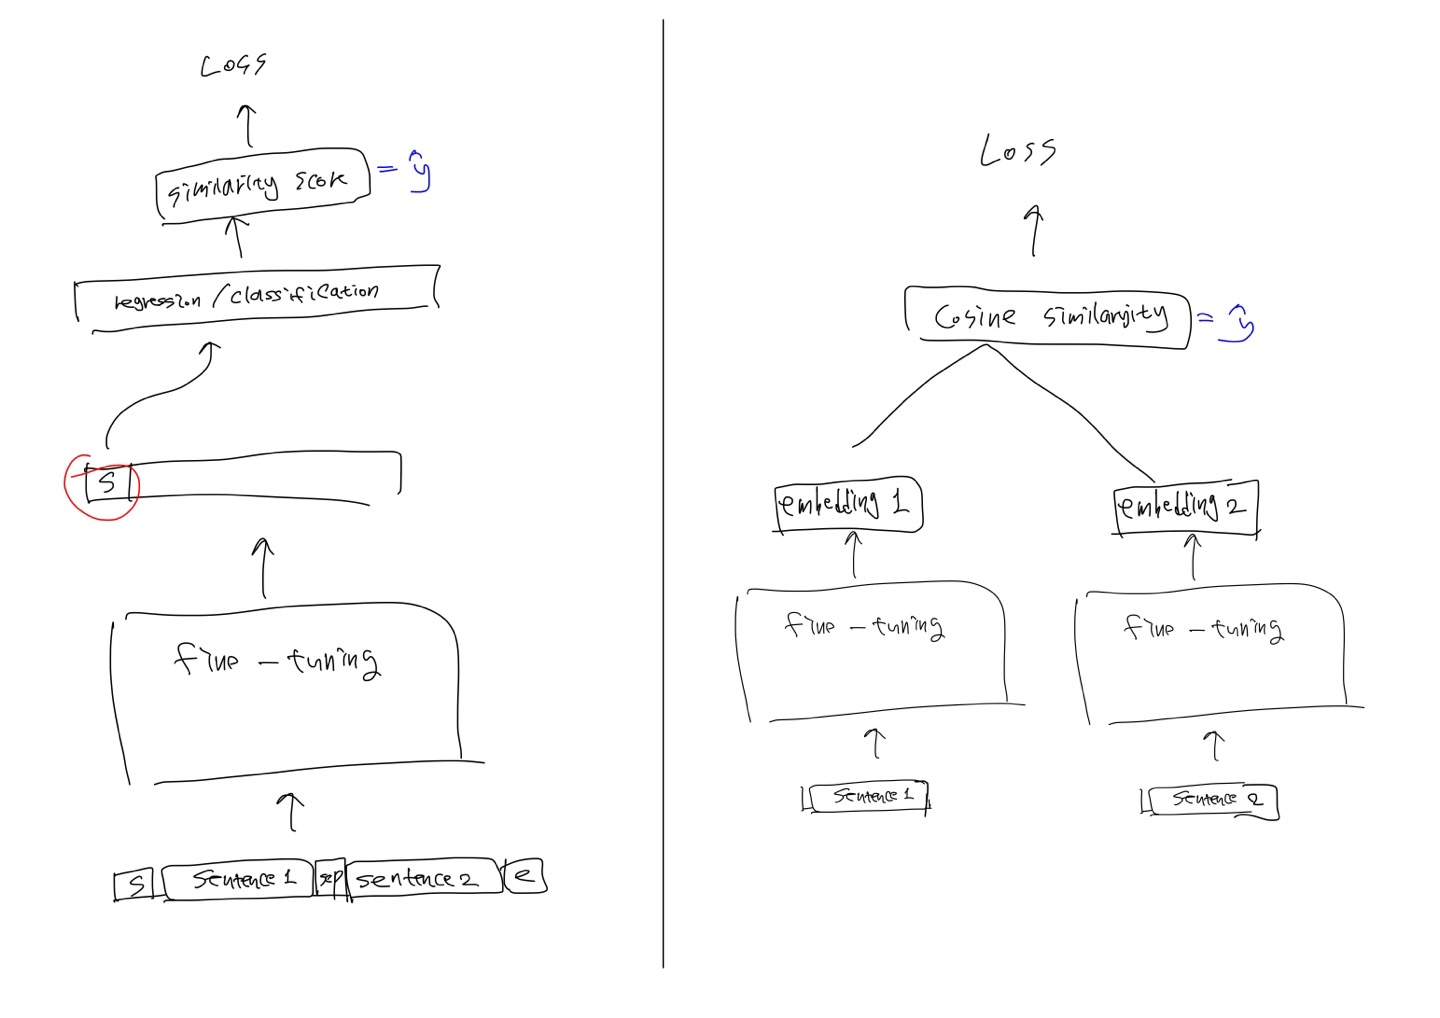 Loss
similarity score = ŷ
regression / classification
S
fine - tuning
S sentence 1 sep sentence 2 e
Loss
Cosine similarity = ŷ
embedding 1 embedding 2
fine - tuning fine - tuning
sentence 1 sentence 2